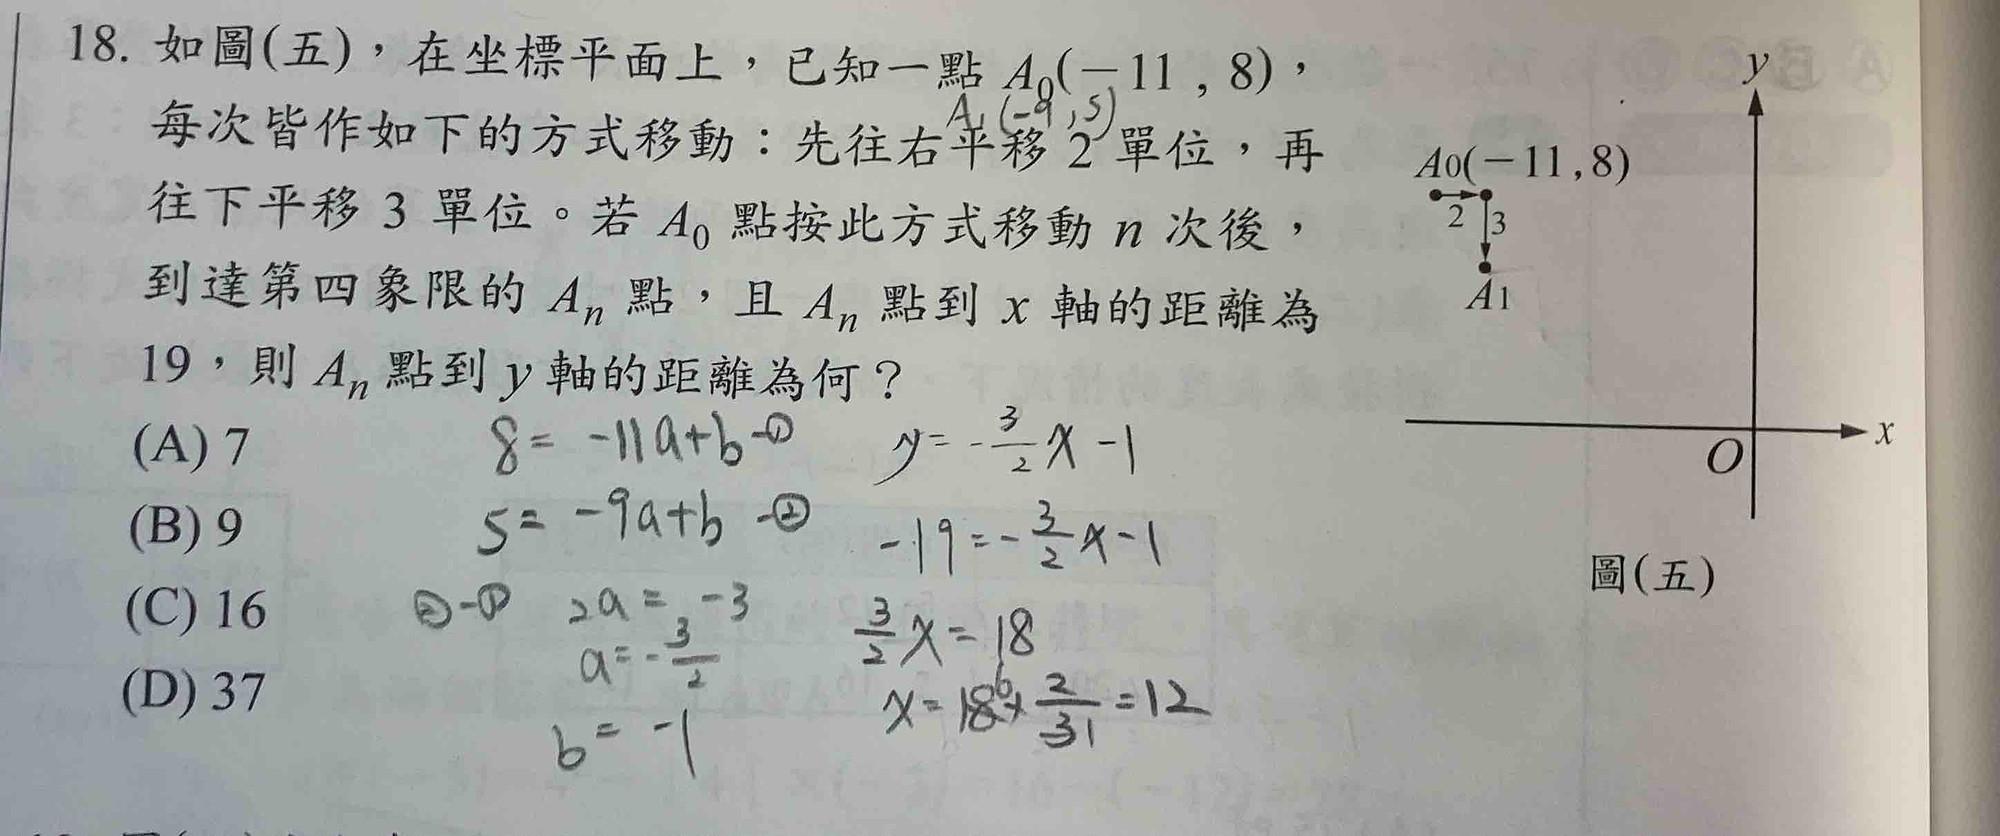 18. 如圖(五)，在坐標平面上，已知一點 A₀(−11 , 8)，
A₁(-9,5)
每次皆作如下的方式移動：先往右平移 2 單位，再
往下平移 3 單位。若 A₀ 點按此方式移動 n 次後，
到達第四象限的 Aₙ 點，且 Aₙ 點到 x 軸的距離為
19，則 Aₙ 點到 y 軸的距離為何？
(A) 7
(B) 9
(C) 16
(D) 37
8 = -11a+b -①
5 = -9a+b -②
②-① 2a = -3
a = -3/2
b = -1
y = -3/2 x - 1
-19 = -3/2 x - 1
3/2 x = 18
x = 18⁶ × 2/31 = 12
y
A0(−11,8)
2
3
A1
x
O
圖(五)